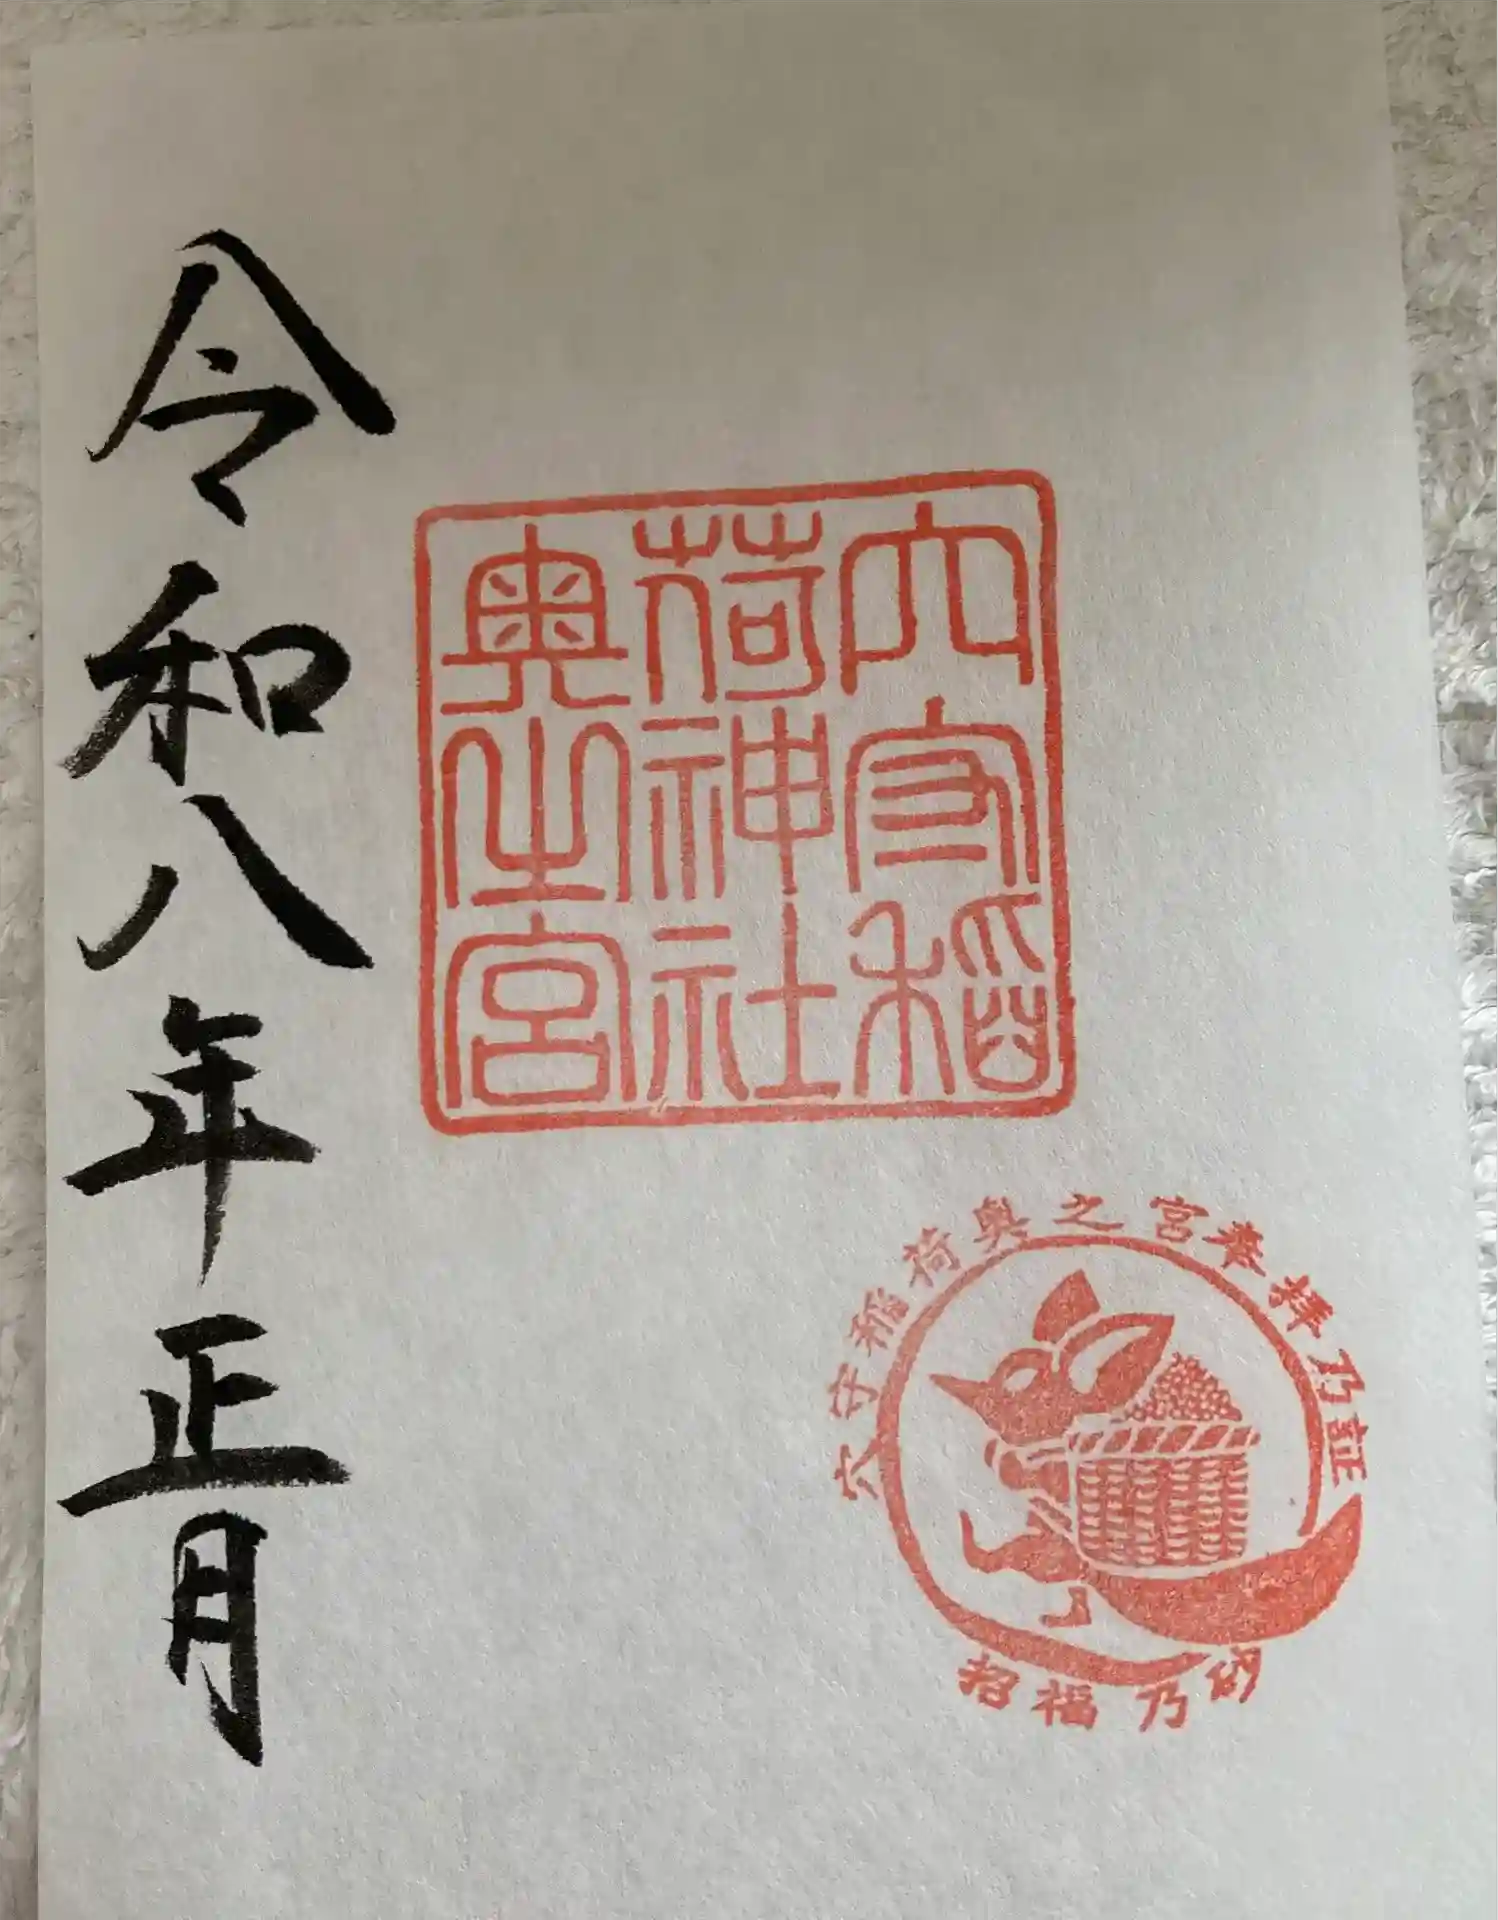 穴守稲
荷神社
奥之宮
令和八年正月
穴守稲荷奥之宮奉拝乃証
招福乃砂